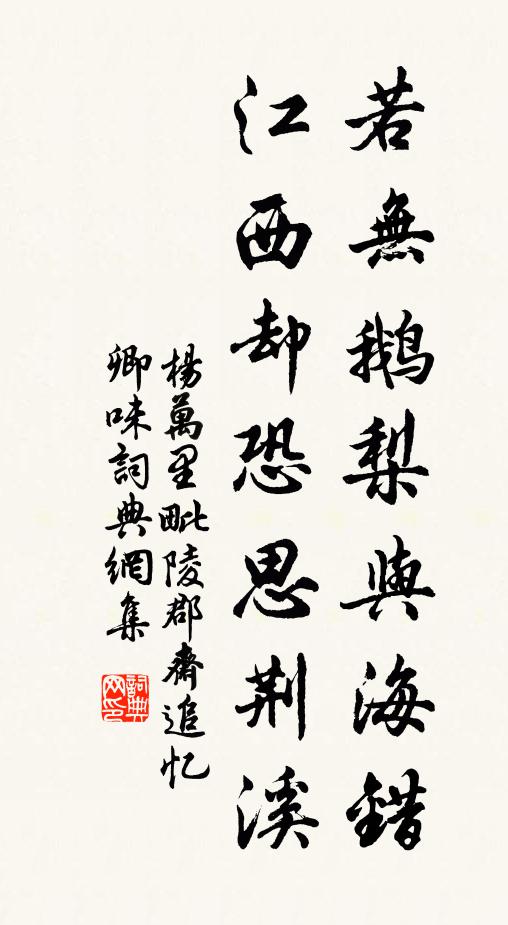 若無鵝梨與海錯
江西却恐思荆溪
楊萬里毗陵郡齋追忆
卿味詞典網集
詞典网印